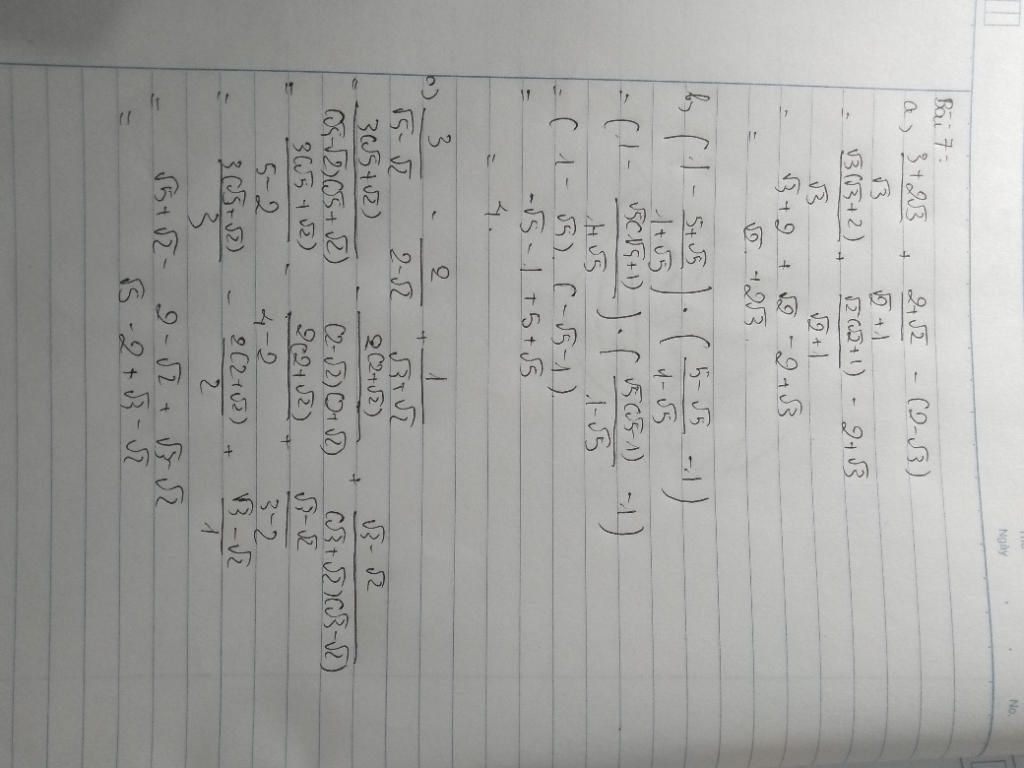 Bài 7:
a) (3+2√3)/√3 + (2+√2)/(√2+1) - (2-√3)
= √3(√3+2)/√3 + √2(√2+1)/(√2+1) - 2+√3
= √3+2 + √2 - 2+√3
= √2 + 2√3
b, (1 - (5+√5)/(1+√5)) . ((5-√5)/(1-√5) - 1)
= (1 - √5(√5+1)/(1+√5)) . (√5(√5-1)/(1-√5) - 1)
= (1 - √5) . (-√5-1)
= -√5 - 1 + 5 + √5
= 4.
c) 3/(√5-√2) - 2/(2-√2) + 1/(√3+√2)
= 3(√5+√2)/((√5-√2)(√5+√2)) - 2(2+√2)/((2-√2)(2+√2)) + (√3-√2)/((√3+√2)(√3-√2))
= 3(√5+√2)/(5-2) - 2(2+√2)/(4-2) + (√3-√2)/(3-2)
= 3(√5+√2)/3 - 2(2+√2)/2 + (√3-√2)/1
= √5+√2 - 2-√2 + √3-√2
= √5 - 2 + √3 - √2
Ngày
No.